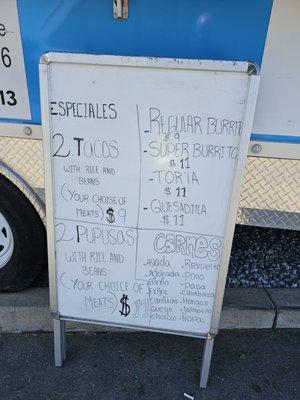 ESPECIALES
2 TACOS
WITH RICE AND
BEANS
(YOUR CHOICE OF
MEATS) $9
2 PUPUSAS
WITH RICE AND
BEANS
(YOUR CHOICE OF
MEATS) $11
-REGULAR BURRITO
$9
-SUPER BURRITO
$11
-TORTA
$11
-QUESADILLA
$11
CARNES
-Asada -Revuelto
-Adobada -Pollo
-Birria -Papa
-Frijol -Calabaza
-Carnitas -Hongos
-Queso -Jalapeño
-Chorizo -Nopal
6
13